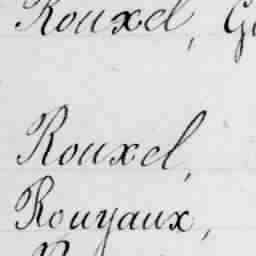 Rouxel, G
Rouxel,
Rouyaux,